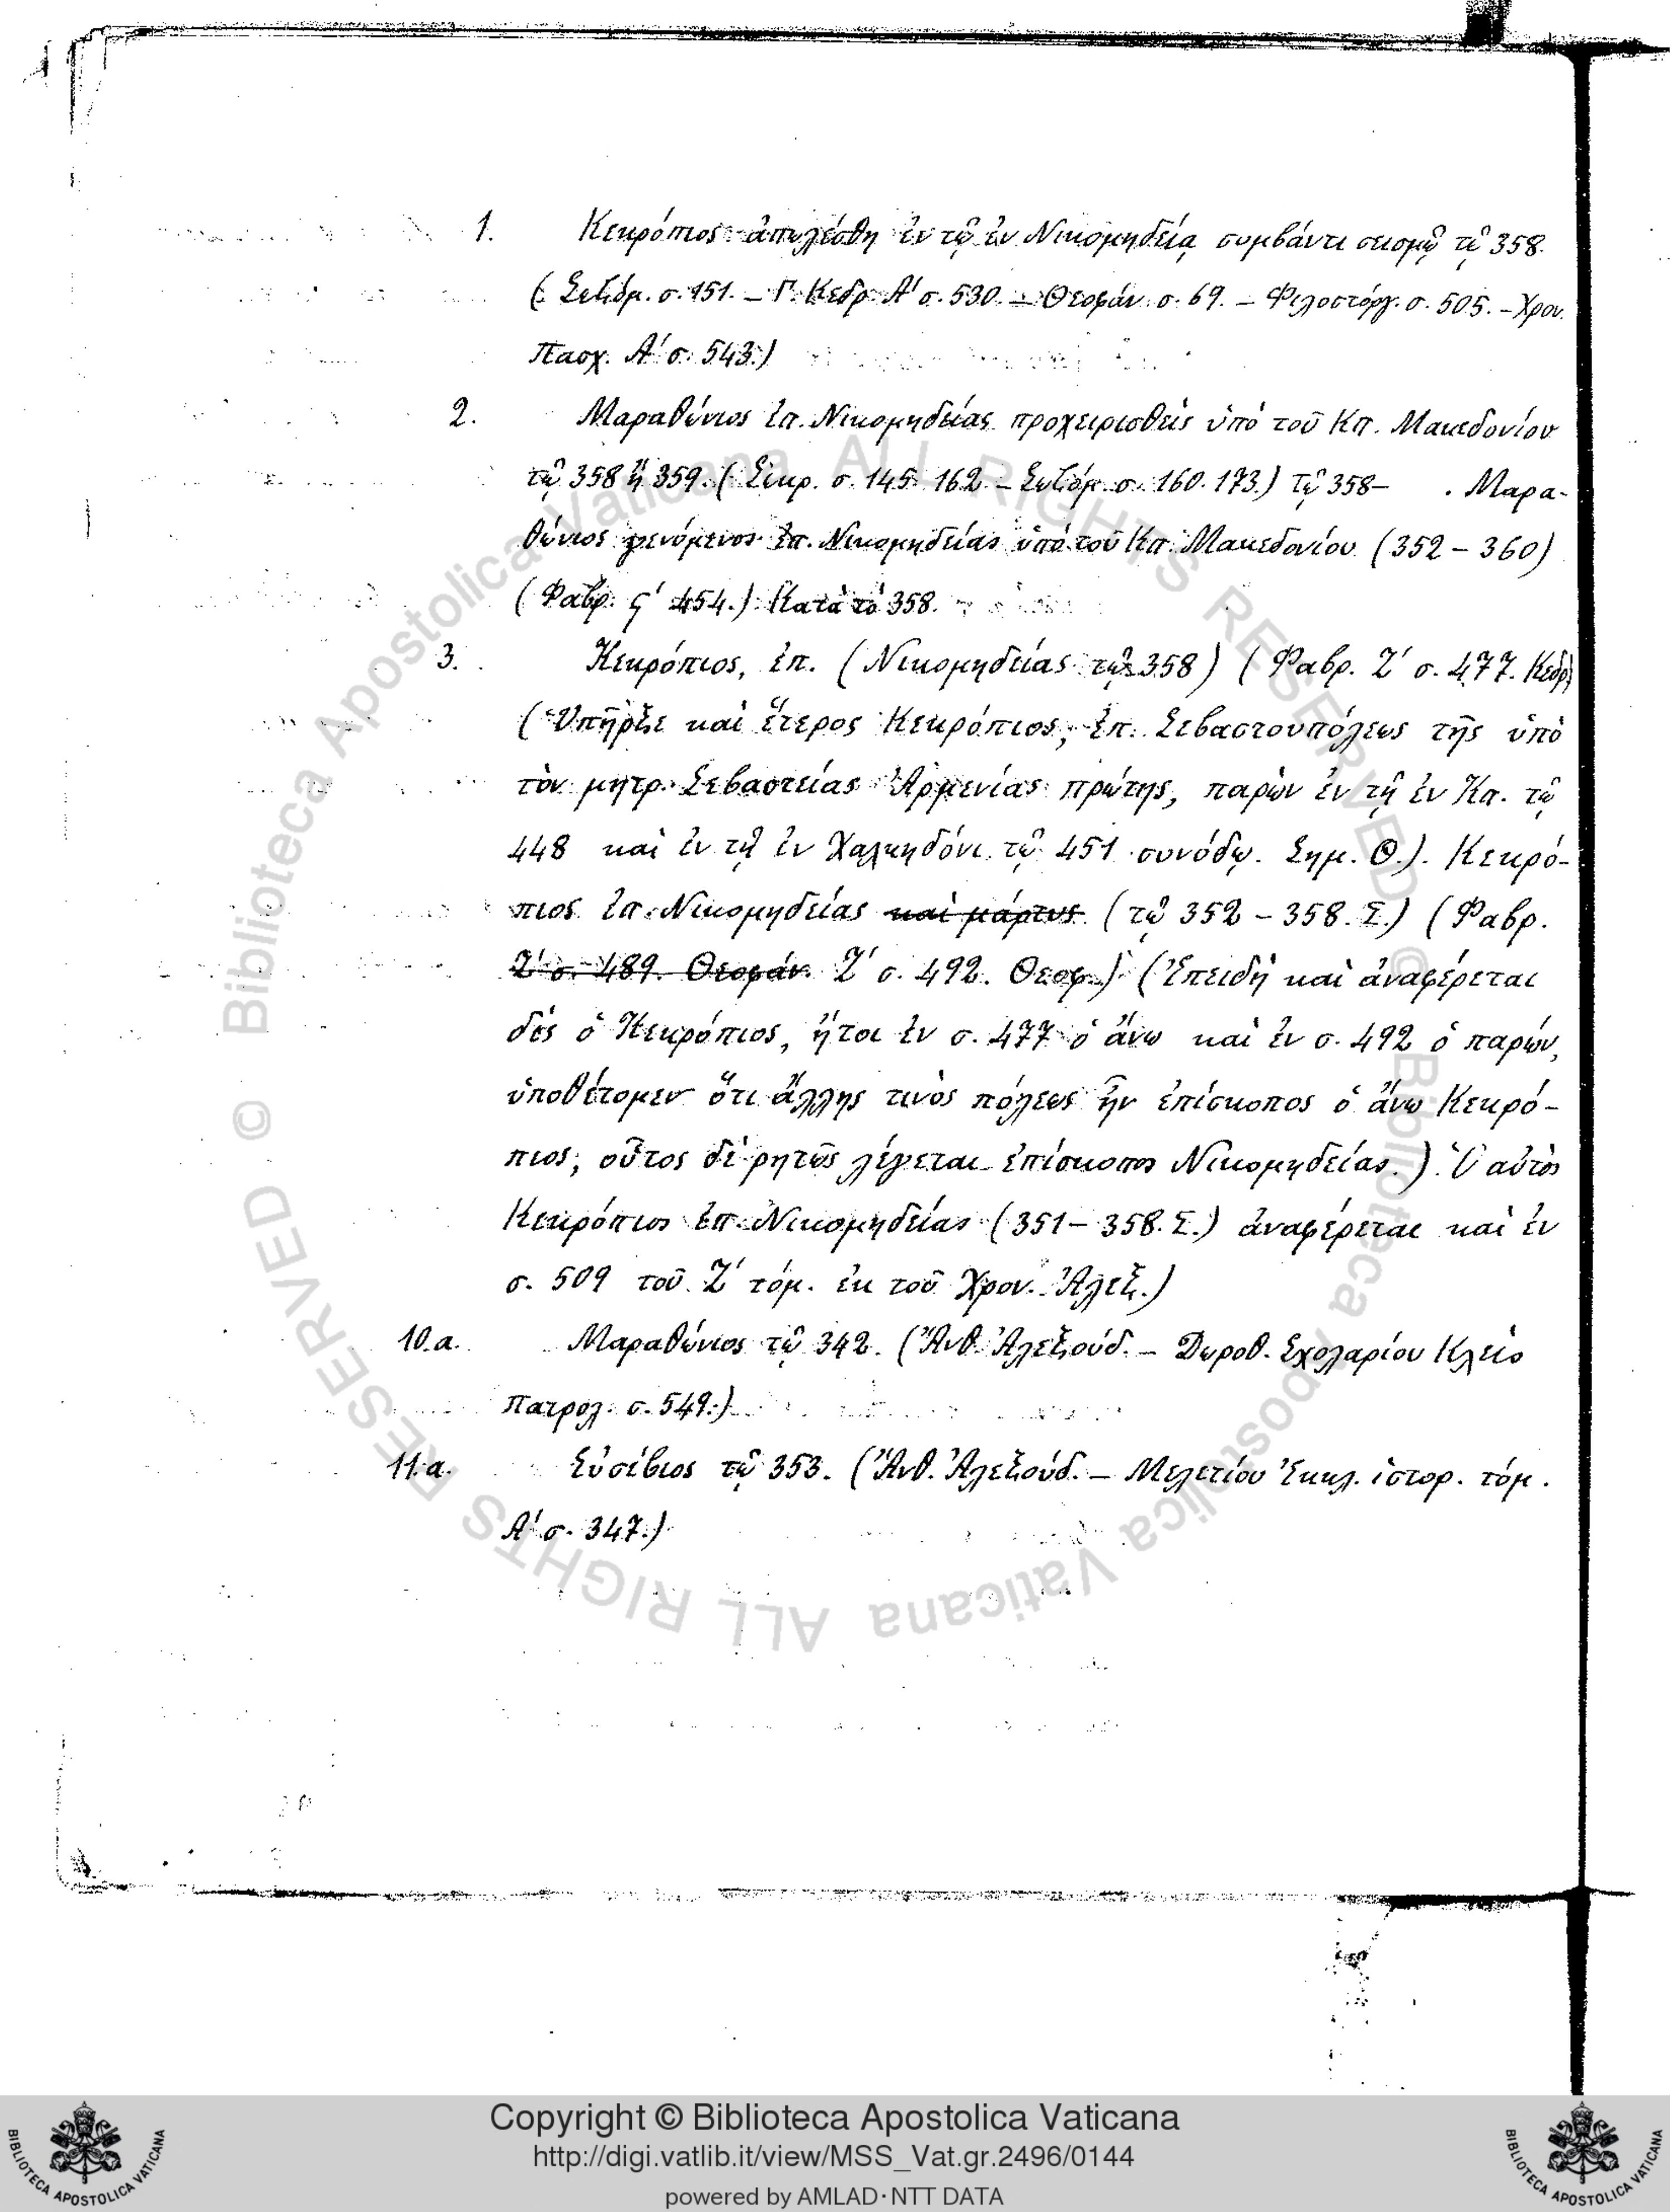 1. Κεκρόπιος ἀπωλέσθη ἐν τῷ ἐν Νικομηδείᾳ συμβάντι σεισμῷ τῷ 358.
( Σωζόμ. σ. 151. – Γ. Κεδρ. Α' σ. 530. – Θεοφάν. σ. 69. – Φιλοστόργ. σ. 505. – Χρον.
Πασχ. Α' σ. 543.)
2. Μαραθώνιος ἐπ. Νικομηδείας προχειρισθεὶς ὑπὸ τοῦ Κπ. Μακεδονίου
τῷ 358 ἢ 359. ( Σωκρ. σ. 145. 162 – Σωζόμ. σ. 160. 173.) Τῷ 358– . Μαρα-
θώνιος γενόμενος ἐπ. Νικομηδείας ὑπὸ τοῦ Κπ. Μακεδονίου (352 – 360)
( Φαβρ. ς' 454.) Κατὰ τὸ 358.
3. Κεκρόπιος, ἐπ. ( Νικομηδείας τῷ 358 ) ( Φαβρ. Ζ' σ. 477. Κεδρ)
( Ὑπῆρξε καὶ ἕτερος Κεκρόπιος, ἐπ. Σεβαστουπόλεως τῆς ὑπὸ
τὸν μητρ. Σεβαστείας Ἀρμενίας πρώτης, παρὼν ἐν τῇ ἐν Κπ. τῷ
448 καὶ ἐν τῇ ἐν Χαλκηδόνι τῷ 451 συνόδῳ. Σημ. Θ.). Κεκρό-
πιος ἐπ. Νικομηδείας καὶ μάρτυς (τῷ 352 – 358. Σ.) ( Φαβρ.
Ζ' σ. 489. Θεοφάν. Ζ' σ. 492. Θεοφ.) ( Ἐπειδὴ καὶ ἀναφέρεται
δὶς ὁ Κεκρόπιος, ἤτοι ἐν σ. 477 ὁ ἄνω καὶ ἐν σ. 492 ὁ παρών,
ὑποθέτομεν ὅτι ἄλλης τινὸς πόλεως ἦν ἐπίσκοπος ὁ ἄνω Κεκρό-
πιος, οὗτος δὲ ρητῶς λέγεται ἐπίσκοπος Νικομηδείας. ). Ὁ αὐτὸς
Κεκρόπιος ἐπ. Νικομηδείας (351 – 358. Σ.) ἀναφέρεται καὶ ἐν
σ. 509 τοῦ Ζ' τόμ. ἐκ τοῦ Χρον. Ἀλεξ.)
10.α. Μαραθώνιος τῷ 342. (Ἄνθ. Ἀλεξούδ. – Δωροθ. Σχολαρίου Κλεὶς
Πατρολ. σ. 549.)
11.α. Εὐσέβιος τῷ 353. (Ἄνθ. Ἀλεξούδ. – Μελετίου Ἐκκλ. ἱστορ. τόμ.
Α' σ. 347.)
© Biblioteca Apostolica Vaticana ALL RIGHTS RESERVED © Biblioteca Apostolica Vaticana ALL RIGHTS RESERVED
Copyright © Biblioteca Apostolica Vaticana
http://digi.vatlib.it/view/MSS_Vat.gr.2496/0144
powered by AMLAD·NTT DATA
BIBLIOTECA APOSTOLICA VATICANA
BIBLIOTECA APOSTOLICA VATICANA